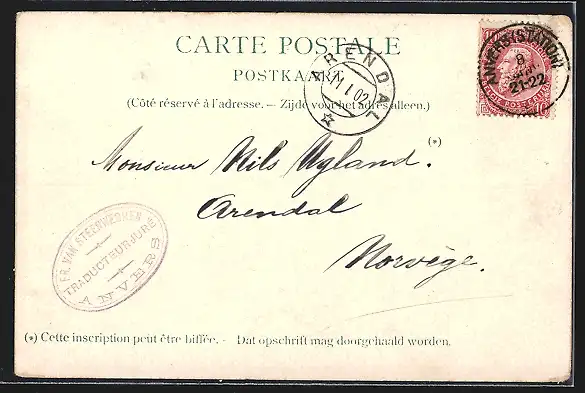 CARTE POSTALE
POSTKAART
(Côté réservé à l'adresse. — Zijde voor het adres alleen.)
ARENDAL
11 I 02
ANVERS (STATION)
8
21-22
10
10
(*)
Monsieur Nils Ugland.
Arendal
Norvège.
FR. VAN STEERWEGHEN
TRADUCTEUR JURÉ
ANVERS
(*) Cette inscription peut être biffée. - Dat opschrift mag doorgehaald worden.